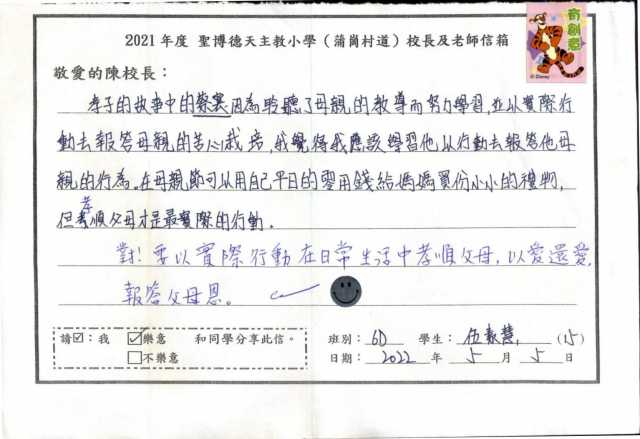 有創意
© Disney
2021年度 聖博德天主教小學（蒲崗村道）校長及老師信箱
敬愛的陳校長：
孝子的故事中的蔡襄因為聆聽了母親的教導而努力學習，並以實際行
動去報答母親的苦心栽培，我覺得我應該學習他以行動去報答他母
親的行為。在母親節可以用自己平日的零用錢給媽媽買份小小的禮物，
但孝順父母才是最實際的行動。
對！要以實際行動在日常生活中孝順父母，以愛還愛，
報答父母恩。
請☑：我 ☑樂意 和同學分享此信。 班別： 6D 學生： 伍 慧 (15)
☐不樂意 日期： 2022 年 5 月 5 日